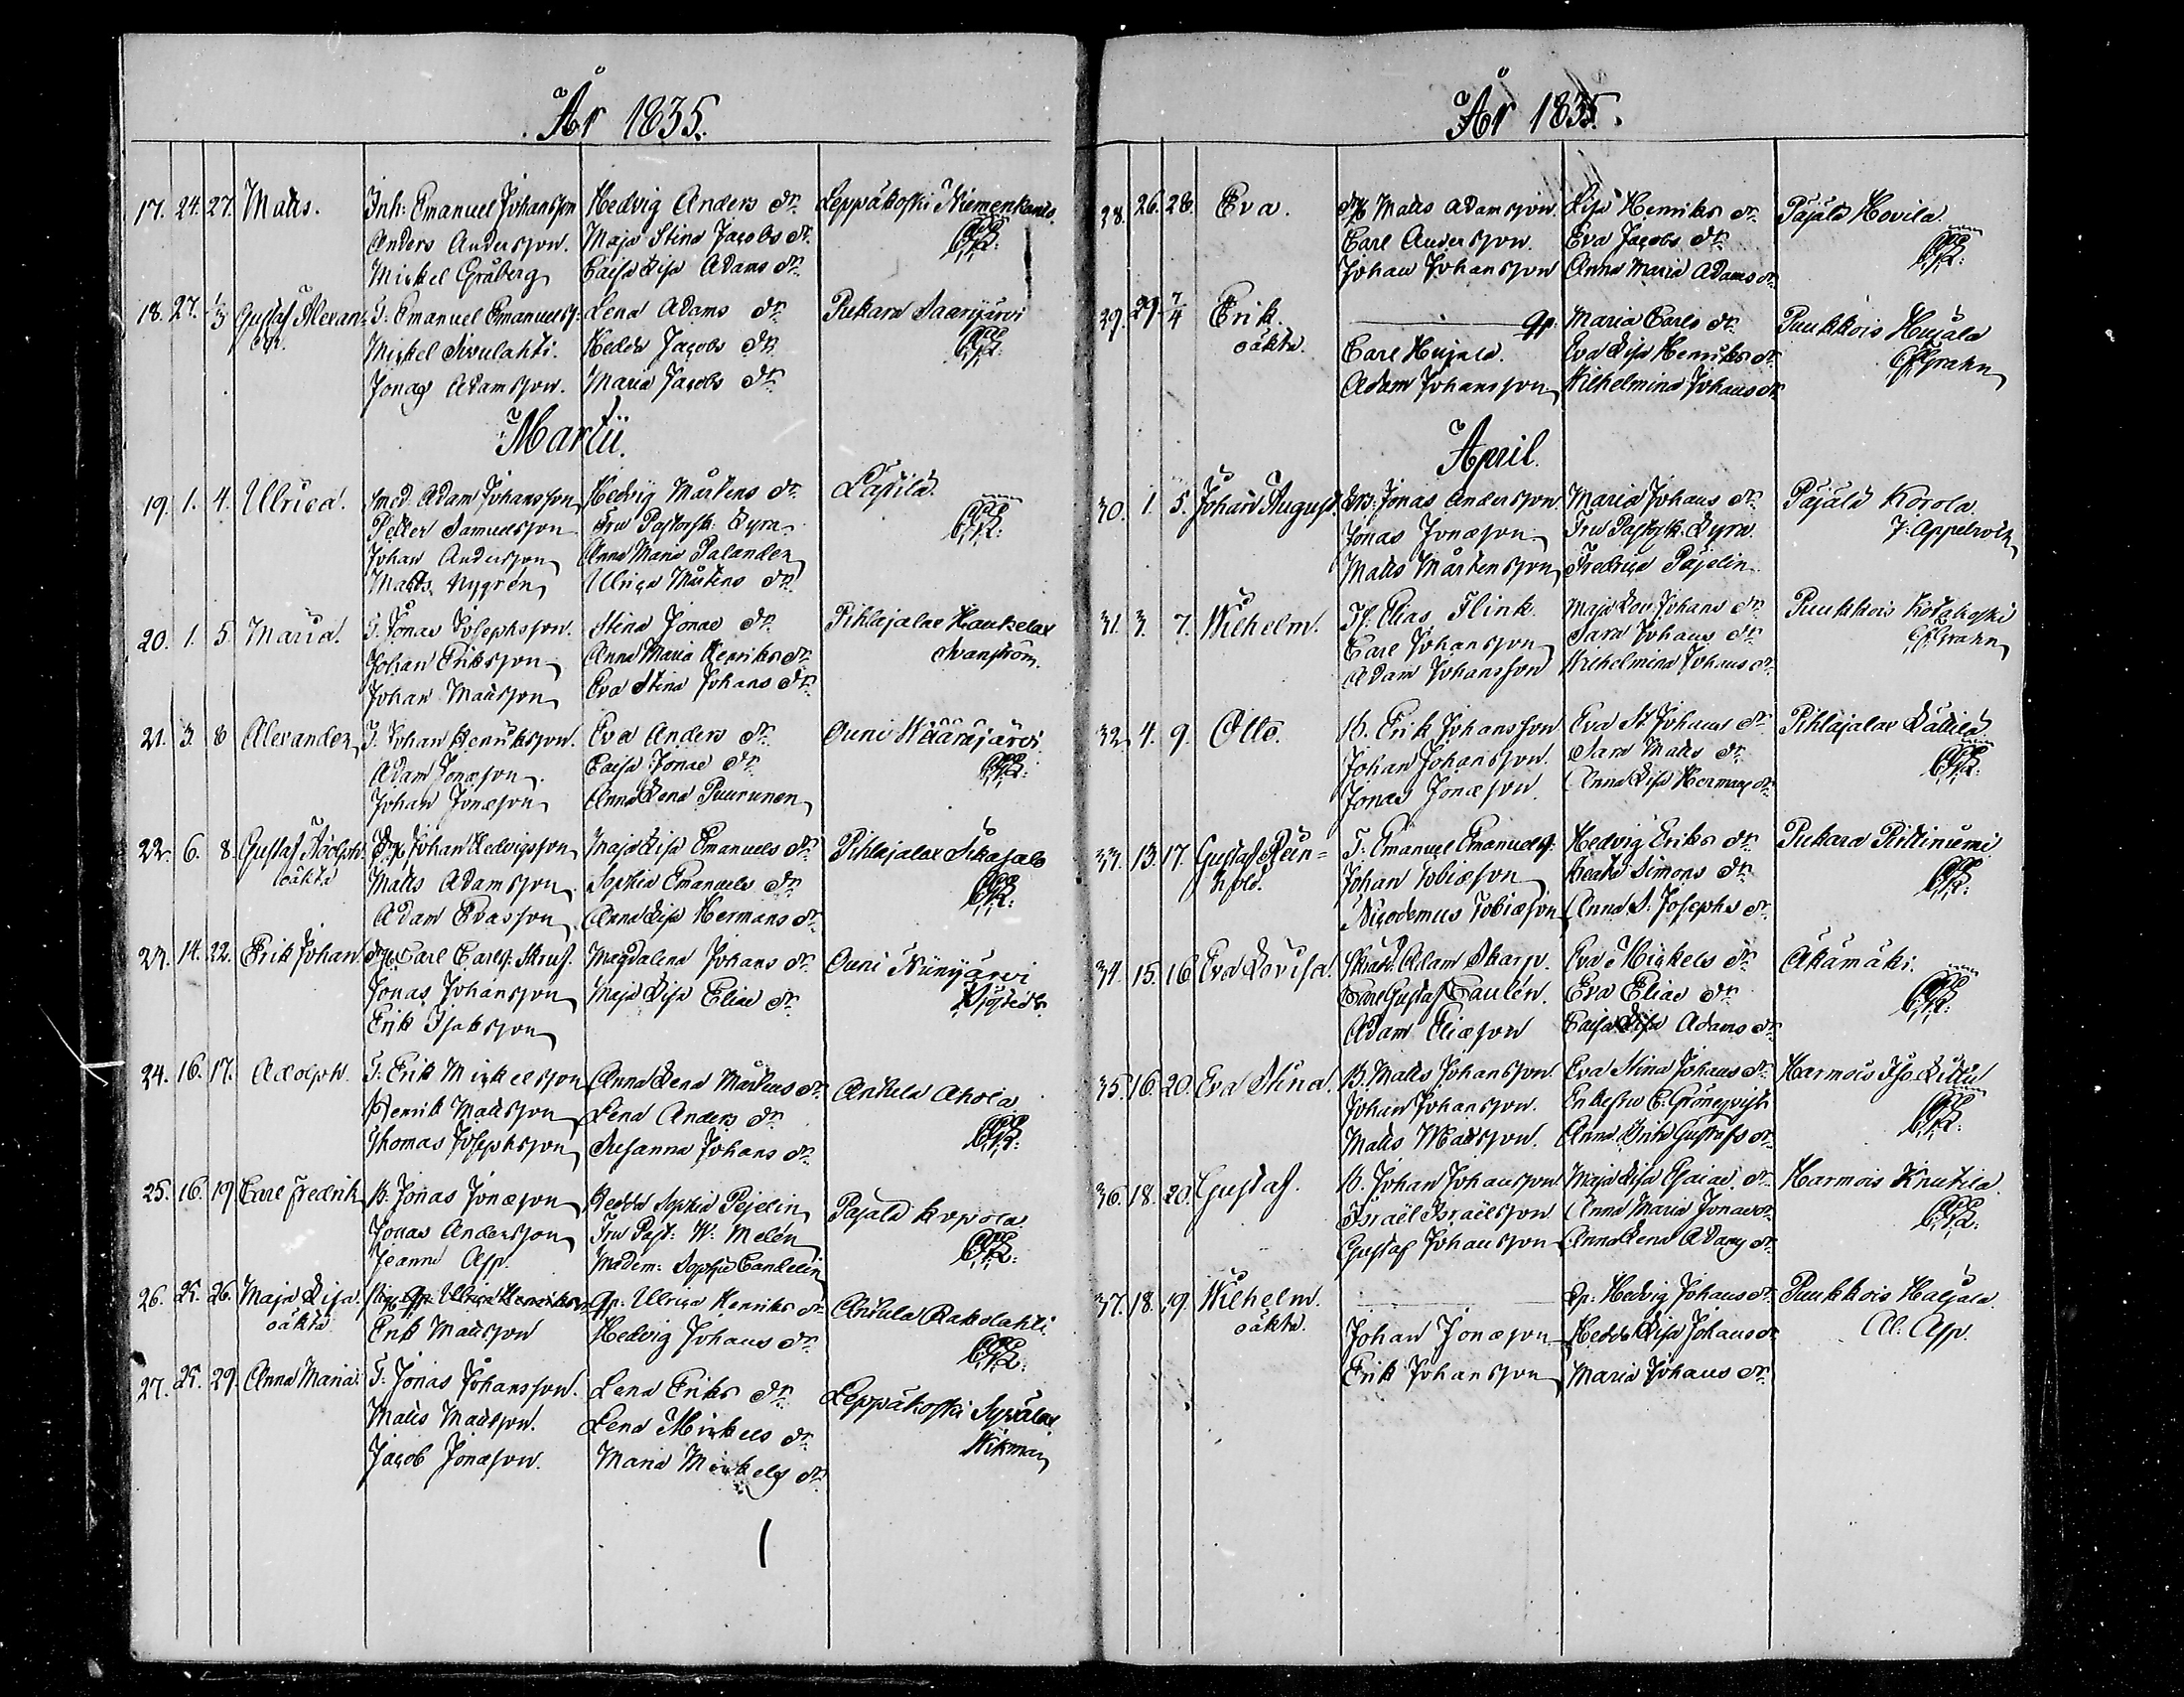 År 1835.
17. 24. 27. Matts. Inh: Emanuel Johansson Hedvig Anders dr. Leppäkoski Niemenkants
Anders Andersson. Maja Stina Jacobs dr.
Mickel Gråberg Caisa Lisa Adams dr.
18. 27. 1/3 Gustaf Alexan- T. Emanuel Emanuelss: Lena Adams dr. Pukara Saarijärvi
der. Mickel Sivulahti. Hedda Jacobs dr.
Jonas Adamsson. Maria Jacobs dr.
Martii.
19. 1. 4. Ullrica. Smed. Adam Johansson Hedvig Mårtens dr.
Petter Samuelsson Fru Pastorsk: Lyra
Johan Andersson Anna Maria Palander
Matts Nygrén Ulrica Mårtens dr.
20. 1. 5. Maria. T. Jonas Josephsson. Stina Jonae dr. Pihlajalax
Johan Eriksson Anna Maria Henriks dr. Svanström.
Johan Mattsson Eva Stina Johans dr.
21. 3. 8 Alexander T. Johan Henriksson. Eva Anders dr. Ouni Wääräjärvi
Adam Jonæson Caisa Jonae dr.
Johan Jonæson Anna Lena Puurunen
22. 6. 8. Gustaf Adolph Johan Hedvigsson Maja Lisa Emanuels dr. Pihlajalax
oäkta Matts Adamsson Sophia Emanuels dr.
Adam Evasson Anna Lisa Hermans dr.
23. 14. 22. Erik Johan Carl Carlss. Magdalena Johans dr. Ouni
Jonas Johansson Maja Lisa Eliæ dr.
Erik Isaksson
24. 16. 17. Adolph. T. Erik Mickelsson Anna Lena Mårtens dr. Anttila Ahola
Henrik Mattsson Lena Anders dr.
Thomas Josephsson Susanna Johans dr.
25. 16. 19. Carl Fredrik B. Jonas Jonæson Hedda Sophia Pejelin Pajala
Jonas Andersson Fru Past: W: Melén
Jeanne Asp. Madem: Sophie Candelin
26. 25. 26. Maja Lisa. Qp. Ulrica Henriks dr. Anttila
oäkta Erik Mattsson Hedvig Johans dr.
27. 25. 29. Anna Maria T. Jonas Johansson. Lena Eriks dr. Leppäkoski
Matts Mattsson. Lena Mickels dr. Wikman
Jacob Jonæson. Maria Mickels dr.
År 1835.
28. 26. 28. Eva. Matts Adamsson. Lisa Henriks dr. Päjälä Hovila.
Carl Andersson. Eva Jacobs dr.
Johan Johansson Anna Maria Adams dr.
29. 29. 7/4 Erik. Qp. Maria Carls dr. Puukkois Hujala
oäkta. Carl Hujala. Eva Lisa Henriks dr. Grahn
Adam Johansson Wilhelmina Johans dr.
April.
30. 1. 5. Johan August. Jonas Andersson. Maria Johans dr. Päjälä
Jonas Jonæson Fru Pastorsk. Lyra. J: Appelroth
Matts Mårtensson Fredrica Päjelin
31. 3. 7. Wilhelm. If. Elias Flink. Maja Lov. Johans dr. Puukkois
Carl Johansson Sara Johans dr. Grahn
Adam Johansson Wilhelmina Johans dr.
32. 4. 9. Otto. B. Erik Johansson Eva St. Johans dr. Pihlajalax
Johan Johansson. Sara Matts dr.
Jonas Jonæson. Anna Lisa Hermans dr.
33. 13. 17. Gustaf Rein= T. Emanuel Emanuelss: Hedvig Eriks dr. Pukara
hold. Johan Tobiæson Beata Simons dr.
Nicodemus Tobiæson Anna S. Josephs dr.
34. 15. 16. Eva Lovisa. Adam Skarp. Eva Mickels dr. Äkämäki.
Carl Gustaf Eva Eliæ dr.
Adam Eliæson Caisa Lisa Adams dr.
35. 16. 20. Eva Stina. B. Matts Johansson. Eva Stina Johans dr. Harmois
Johan Johansson. Enkefru
Matts Mattsson. Anna Brita Gustafs dr.
36. 18. 20. Gustaf. B. Johan Johansson Maja Lisa Esaiae dr. Harmois Knutila.
Israël Israëlsson. Anna Maria Jonae dr.
Gustaf Johansson Anna Lena Adams dr.
37. 18. 19. Wilhelm. Qp: Hedvig Johans dr. Puukkois
oäkta. Johan Jonæson Hedda Lisa Johans dr. Al: Asp.
Erik Johansson Maria Johans dr.